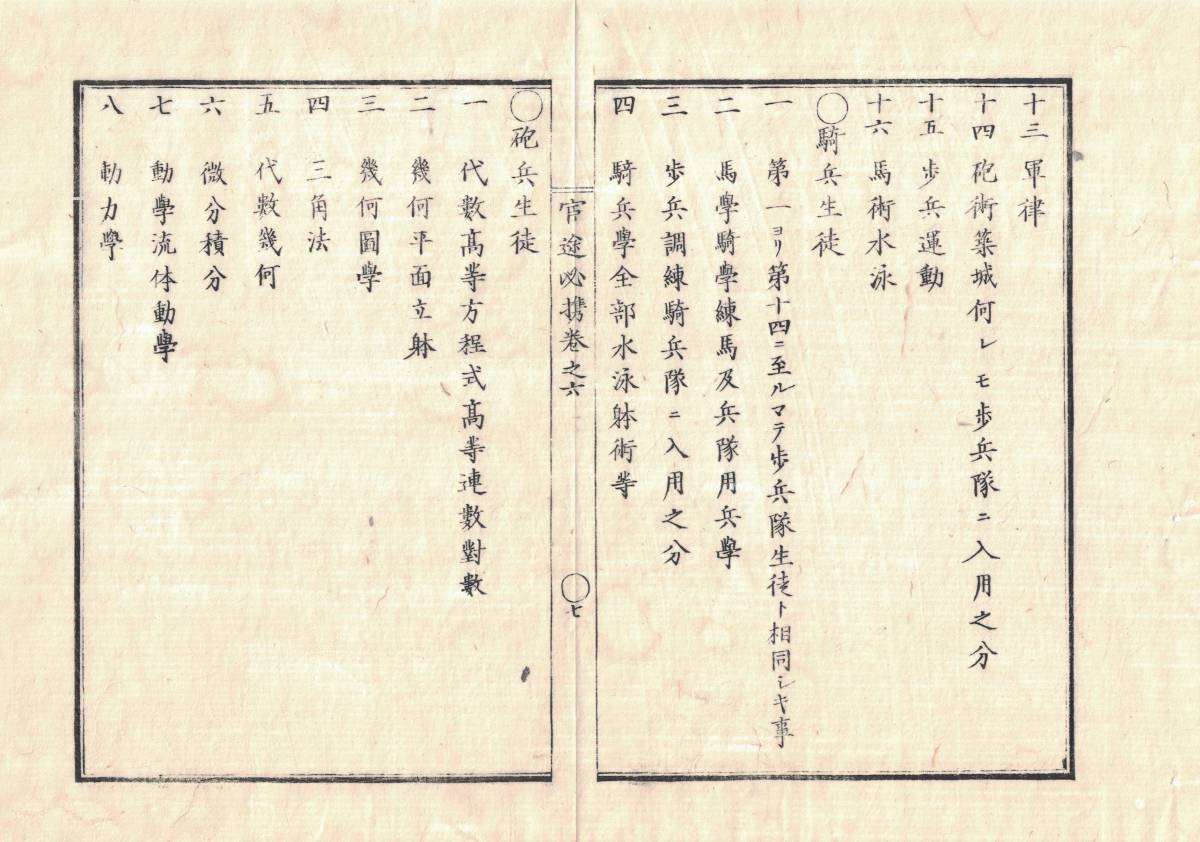 十三 軍律
十四 砲術築城何レモ步兵隊ニ入用之分
十五 步兵運動
十六 馬術水泳
〇騎兵生徒
一 第一ヨリ第十四ニ至ルマテ步兵隊生徒ト相同シキ事
二 馬學騎學練馬及兵隊用兵學
三 步兵調練騎兵隊ニ入用之分
四 騎兵學全部水泳躰術等
官途必携卷之六
〇七
〇砲兵生徒
一 代數髙等方程式髙等連數對數
二 幾何平面立躰
三 幾何圖學
四 三角法
五 代數幾何
六 微分積分
七 動學流体動學
八 動力學